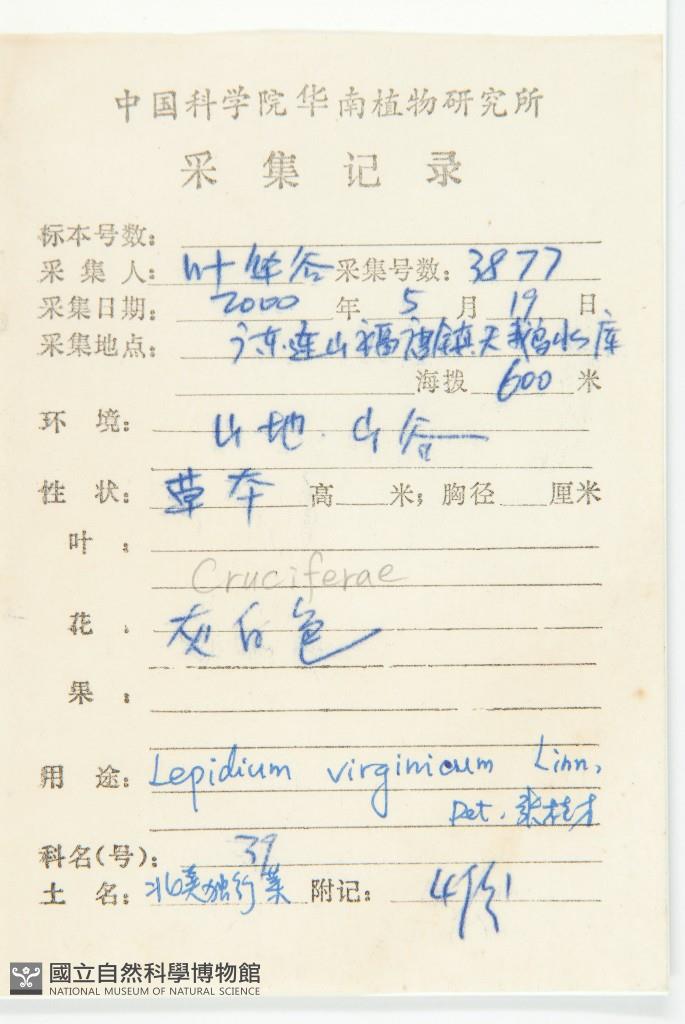 中国科学院华南植物研究所
采集记录
标本号数：
采集人：叶华谷 采集号数：3877
采集日期：2000年5月19日
采集地点：广东连山福堂镇天鹅水库
海拨600米
环境：山地．山谷
性状：草本 高 米；胸径 厘米
叶：
Cruciferae
花：灰白色
果：
用途：Lepidium virginicum Linn.
Det. 张桂才
科名(号)：39
土名：北美独行菜 附记：4份
國立自然科學博物館
NATIONAL MUSEUM OF NATURAL SCIENCE